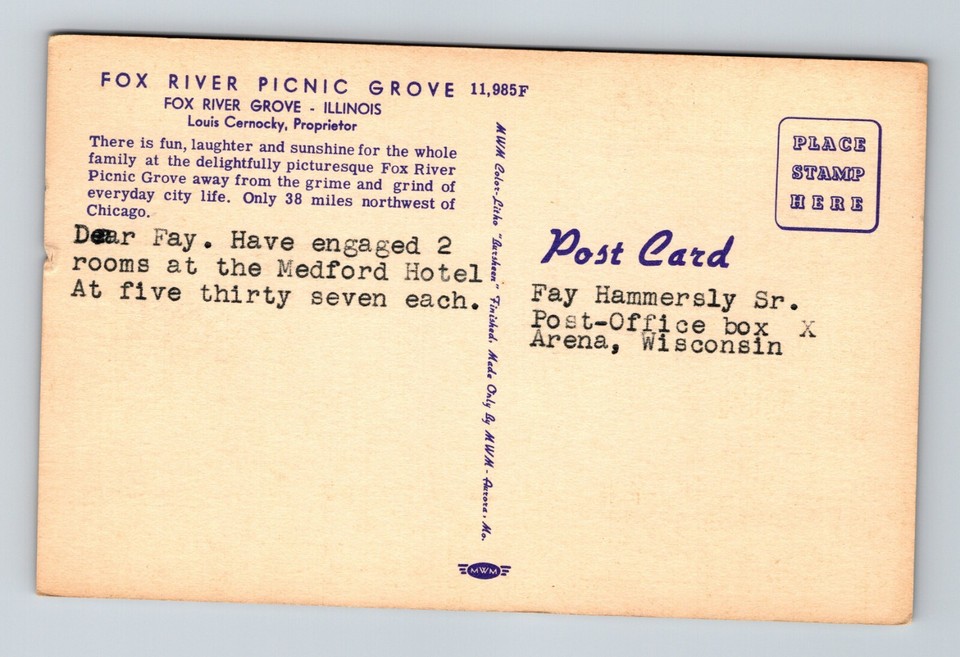 FOX RIVER PICNIC GROVE 11,985F
FOX RIVER GROVE - ILLINOIS
Louis Cernocky, Proprietor
There is fun, laughter and sunshine for the whole
family at the delightfully picturesque Fox River
Picnic Grove away from the grime and grind of
everyday city life. Only 38 miles northwest of
Chicago.
Dear Fay. Have engaged 2
rooms at the Medford Hotel
At five thirty seven each.
MWM Color-Litho "Dursheen" Finished. Made Only By MWM - Aurora, Mo.
MWM
PLACE
STAMP
HERE
Post Card
Fay Hammersly Sr.
Post-Office box X
Arena, Wisconsin